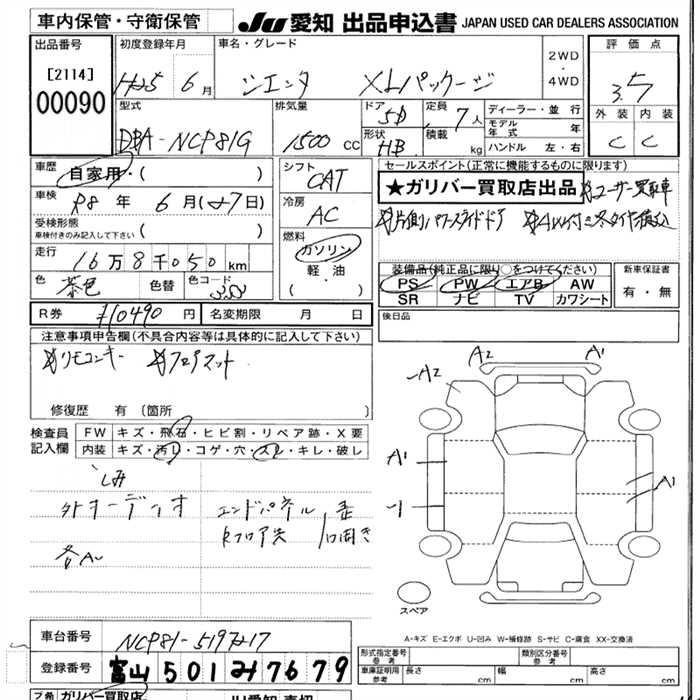 車内保管・守衛保管
JU 愛知 出品申込書 JAPAN USED CAR DEALERS ASSOCIATION
出品番号
[2114]
00090
初度登録年月
H25 6月
車名・グレード
シエンタ XLパッケージ
2WD
・
4WD
評価点
3.5
外装 内装
C C
型式
DBA-NCP81G
排気量
1500 cc
ドア
5D
形状
HB
定員
7人
積載 kg
ディーラー・並行
モデル年式 年
ハンドル 左・右
車歴
自家用・( )
車検
R8 年 6月( 27日)
受検形態
車検付きのみ記入して下さい ( )
走行
16万8千050km
色
茶色
色替
色コード
シフト
CAT
冷房
AC
燃料
ガソリン
軽・油
( ・ )
セールスポイント(正常に機能するものに限ります)
★ガリバー買取店出品
ユーザー買取車
片側パワースライドドア
装備品(純正品に限り○をつけてください)
PS PW エアB AW
SR ナビ TV カワシート
新車保証書
有・無
R券 ¥10490 円
名変期限 月 日
後日品
注意事項申告欄(不具合内容等は具体的に記入して下さい)
リモコンキー フロアマット
修復歴 有 [箇所 ]
検査員
記入欄
FW キズ・飛石・ヒビ割・リペア跡・X要
内装 キズ・汚れ・コゲ・穴・スレ・キレ・破レ
しみ
外オーディオ
各A
エンドパネル
A2 A1
A2
A1
A1
スペア
A-キズ E-エクボ U-凹み W-補修跡 S-サビ C-腐食 XX-交換済
車台番号
NCP81-5197217
登録番号
富山 501 み 7679
形式指定番号
参考
類別区分番号
参考
車庫証明用
参考
長さ cm
幅 cm
高さ cm
ガリバー買取店
JU愛知